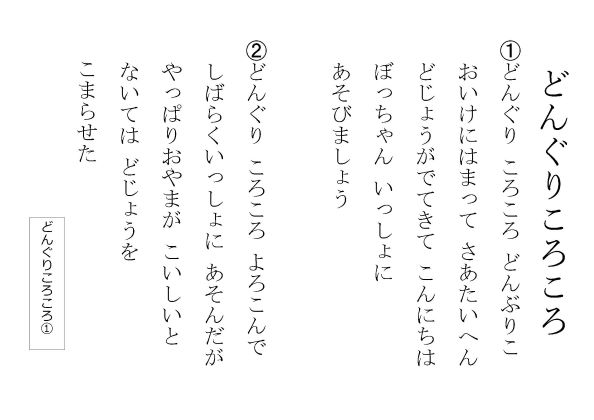 どんぐりころころ
①どんぐり ころころ どんぶりこ
おいけにはまって さあたいへん
どじょうがでてきて こんにちは
ぼっちゃん いっしょに
あそびましょう
②どんぐり ころころ よろこんで
しばらくいっしょに あそんだが
やっぱりおやまが こいしいと
ないては どじょうを
こまらせた
どんぐりころころ①